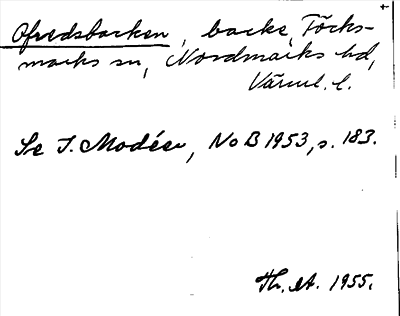 Ofredsbacken, backe, Töcks-
marks sn, Nordmarks hd,
Värml. l.
Se I. Modéer, NoB 1953, s. 183.
Th. A. 1955.